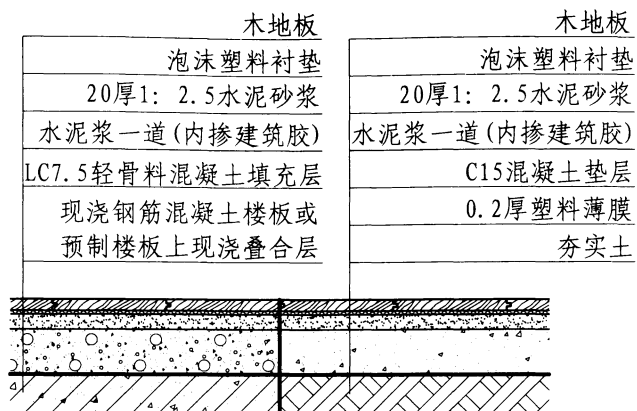 木地板
泡沫塑料衬垫
20厚1: 2.5水泥砂浆
水泥浆一道(内掺建筑胶)
LC7.5轻骨料混凝土填充层
现浇钢筋混凝土楼板或
预制楼板上现浇叠合层
木地板
泡沫塑料衬垫
20厚1: 2.5水泥砂浆
水泥浆一道(内掺建筑胶)
C15混凝土垫层
0.2厚塑料薄膜
夯实土